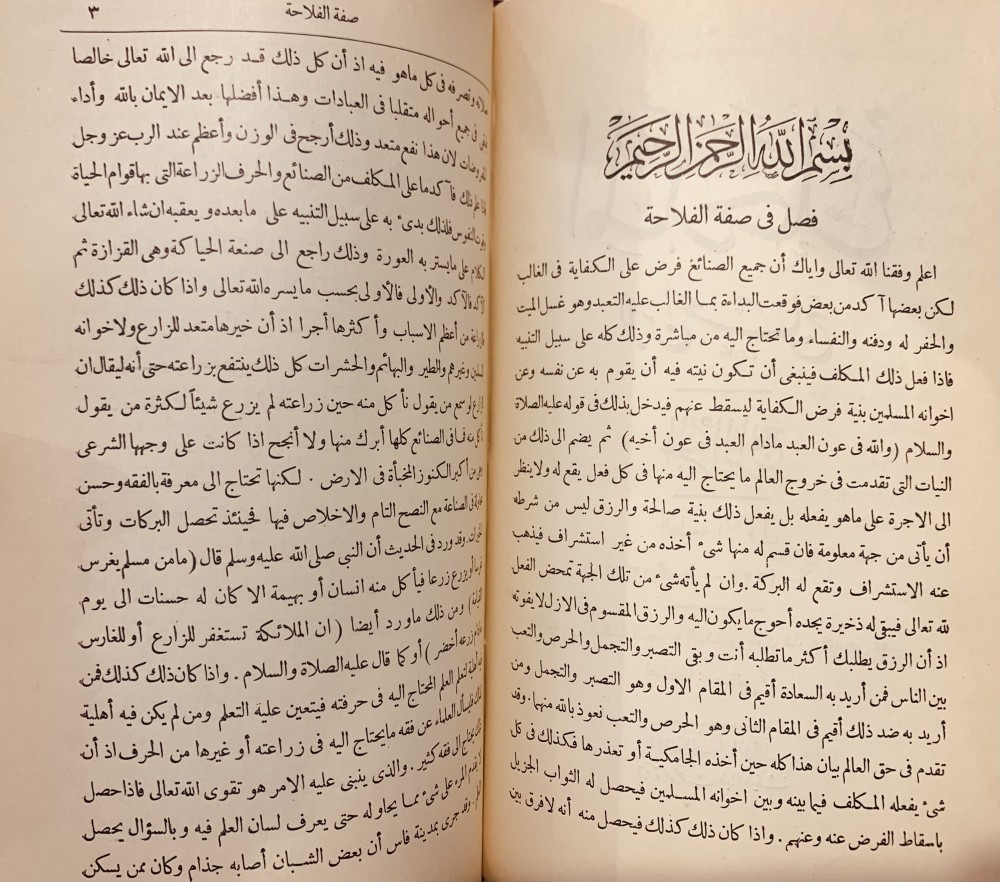 بسم الله الرحمن الرحيم
فصل فى صفة الفلاحة
اعلم وفقنا الله تعالى واياك أن جميع الصنائع فرض على الكفاية فى الغالب
لكن بعضها آكد من بعض فوقعت البداءة بما الغالب عليه التعبد وهو غسل الميت
والحفر له ودفنه والنفساء وما تحتاج اليه من مباشرة وذلك كله على سبيل التنبيه
فاذا فعل ذلك المكلف فينبغى أن تكون نيته فيه أن يقوم به عن نفسه وعن
اخوانه المسلمين بنية فرض الكفاية ليسقط عنهم فيدخل بذلك فى قوله عليه الصلاة
والسلام (والله فى عون العبد مادام العبد فى عون أخيه) ثم يضم الى ذلك من
النيات التى تقدمت فى خروج العالم ما يحتاج اليه منها فى كل فعل يقع له ولا ينظر
الى الاجرة على ماهو يفعله بل يفعل ذلك بنية صالحة والرزق ليس من شرطه
أن يأتى من جهة معلومة فان قسم له منها شىء أخذه من غير استشراف فيذهب
عنه الاستشراف وتقع له البركة . وان لم يأته شىء من تلك الجهة تمحض الفعل
لله تعالى فيبقى له ذخيرة يجده أحوج ما يكون اليه والرزق المقسوم فى الازل لا يفوته
اذ أن الرزق يطلبك أكثر ما تطلبه أنت و بقى التصبر والتجمل والحرص والتعب
بين الناس فمن أريد به السعادة أقيم فى المقام الاول وهو التصبر والتجمل ومن
أريد به ضد ذلك أقيم فى المقام الثانى وهو الحرص والتعب نعوذ بالله منهما . وقد
تقدم فى حق العالم بيان هذا كله حين أخذه الجامكية أو تعذرها فكذلك فى كل
شىء يفعله المكلف فيما بينه وبين اخوانه المسلمين فيحصل له الثواب الجزيل
باسقاط الفرض عنه وعنهم . واذا كان ذلك كذلك فيحصل منه أنه لا فرق بين
صفة الفلاحة ٣
صلاته وتصرفه فى كل ماهو فيه اذ أن كل ذلك قد رجع الى الله تعالى خالصا
فى جميع أحواله متقلبا فى العبادات وهذا أفضلها بعد الايمان بالله وأداء
المفروضات لان هذا نفع متعد وذلك أرجح فى الوزن وأعظم عند الرب عز وجل
ذلك فآكد ما على المكلف من الصنائع والحرف الزراعة التى بها قوام الحياة
وقوت النفوس فلذلك بدىء به على سبيل التنبيه على ما بعده و يعقبه ان شاء الله تعالى
الكلام على ما يستر به العورة وذلك راجع الى صنعة الحياكة وهى القزازة ثم
الآكد فالآكد والأولى فالأولى بحسب ما يسره الله تعالى واذا كان ذلك كذلك
فالزراعة من أعظم الاسباب وأكثرها أجرا اذ أن خيرها متعد للزارع ولاخوانه
المسلمين وغيرهم والطير والبهائم والحشرات كل ذلك ينتفع بزراعته حتى أنه ليقال ان
الزارع لو سمع من يقول نأكل منه حين زراعته لم يزرع شيئاً لكثرة من يقول
نأكل منه فما فى الصنائع كلها أبرك منها ولا أنجح اذا كانت على وجهها الشرعى
وهى من أكبر الكنوز المخبأة فى الارض . لكنها تحتاج الى معرفة بالفقه وحسن
فى الصناعة مع النصح التام والاخلاص فيها فحينئذ تحصل البركات وتأتى
الخيرات . وقد ورد فى الحديث أن النبى صلى الله عليه وسلم قال (مامن مسلم يغرس
غرسا أو يزرع زرعا فيأكل منه انسان أو بهيمة الا كان له حسنات الى يوم
القيامة) ومن ذلك ماورد أيضا (ان الملائكة تستغفر للزارع أو للغارس
مادام زرعه أخضر) أو كما قال عليه الصلاة والسلام . واذا كان ذلك كذلك فمن
لتعلم العلم المحتاج اليه فى حرفته فيتعين عليه التعلم ومن لم يكن فيه أهلية
فليسأل العلماء عن فقه ما يحتاج اليه فى زراعته أو غيرها من الحرف اذ أن
ذلك يحتاج الى فقه كثير . والذى ينبنى عليه الامر هو تقوى الله تعالى فاذا حصل
المرء على شىء مما يحاوله حتى يعرف لسان العلم فيه و بالسؤال يحصل
العلم . وقد جرى بمدينة فاس أن بعض الشبان أصابه جذام وكان ممن يسكن